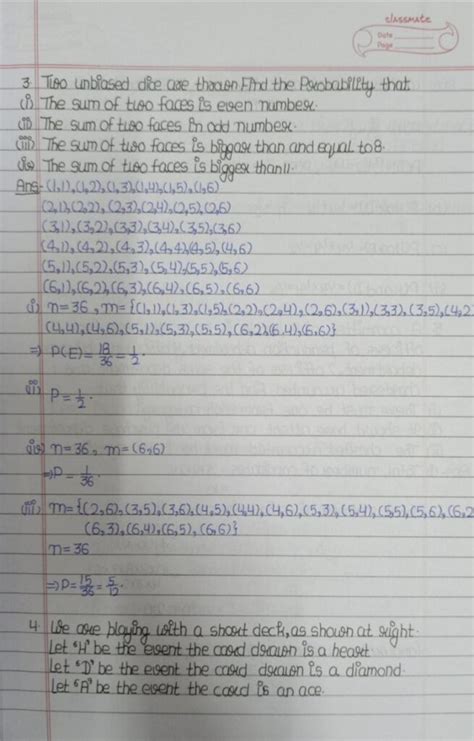 classmate
Date
Page
3. Two unbiased dice are thrown Find the Probability that
(i) The sum of two faces is even number.
(ii) The sum of two faces in odd number.
(iii) The sum of two faces is biggar than and equal to 8.
(iv) The sum of two faces is bigger than 11.
Ans- (1,1),(1,2),(1,3)(1,4),(1,5),(1,6)
(2,1)(2,2), (2,3)(2,4),(2,5),(2,6)
(3,1),(3,2),(3,3),(3,4),(3,5),(3,6)
(4,1),(4,2),(4,3),(4,4)(4,5),(4,6)
(5,1),(5,2),(5,3),(5,4),(5,5),(5,6)
(6,1),(6,2),(6,3),(6,4),(6,5),(6,6)
(i) n=36, m={(1,1),(1,3),(1,5),(2,2),(2,4),(2,6),(3,1),(3,3),(3,5),(4,2)
(4,4),(4,6),(5,1),(5,3),(5,5),(6,2)(6,4),(6,6)}
⇒ P(E)= 18/36 = 1/2.
(ii) P= 1/2.
(iv) n=36, m=(6,6)
⇒P= 1/36.
(iii) m={(2,6),(3,5),(3,6),(4,5),(4,4),(4,6),(5,3),(5,4),(5,5),(5,6),(6,2
(6,3),(6,4),(6,5),(6,6)}
n=36
⇒P= 15/36 = 5/12.
4. We are playing with a short deck, as shown at right.
Let "H" be the event the card drawn is a heart
Let "D" be the event the card drawn is a diamond.
Let "A" be the event the card is an ace.